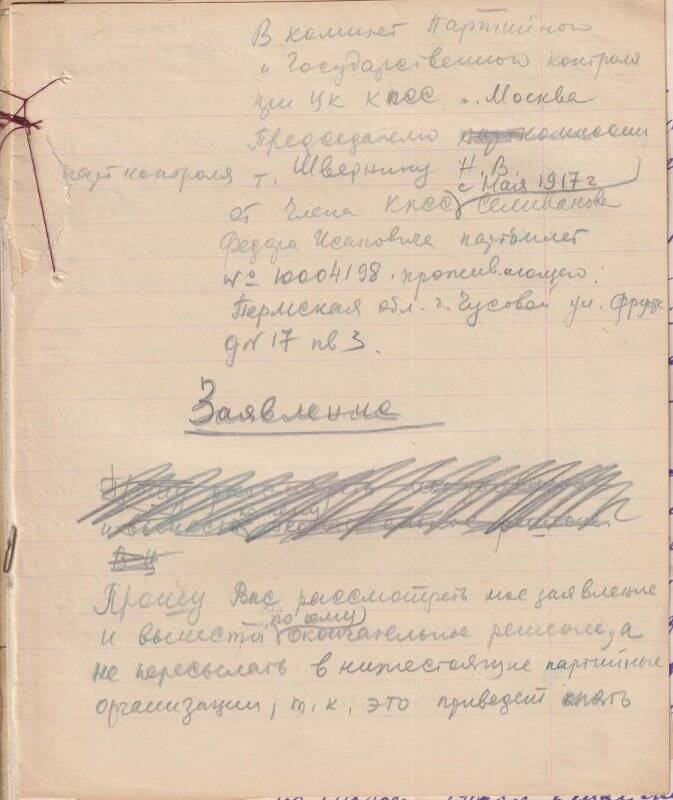 В комитет Партийного
и Государственного контроля
при ЦК КПСС г. Москва
Председателю парт комиссии
парт контроля т. Швернику Н. В.
с Мая 1917 г
от Члена КПСС Селиванова
Федора Исаковича партбилет
№ 10004198. проживающего:
Пермская обл. г. Чусовой ул. Фрунзе
д № 17 кв 3.
Заявление
В ц
Прошу Вас рассмотреть мое заявление
по нему
и вынести окончательное решение, а
не пересылать в нижестоящие партийные
организации, т.к. это приведет опять